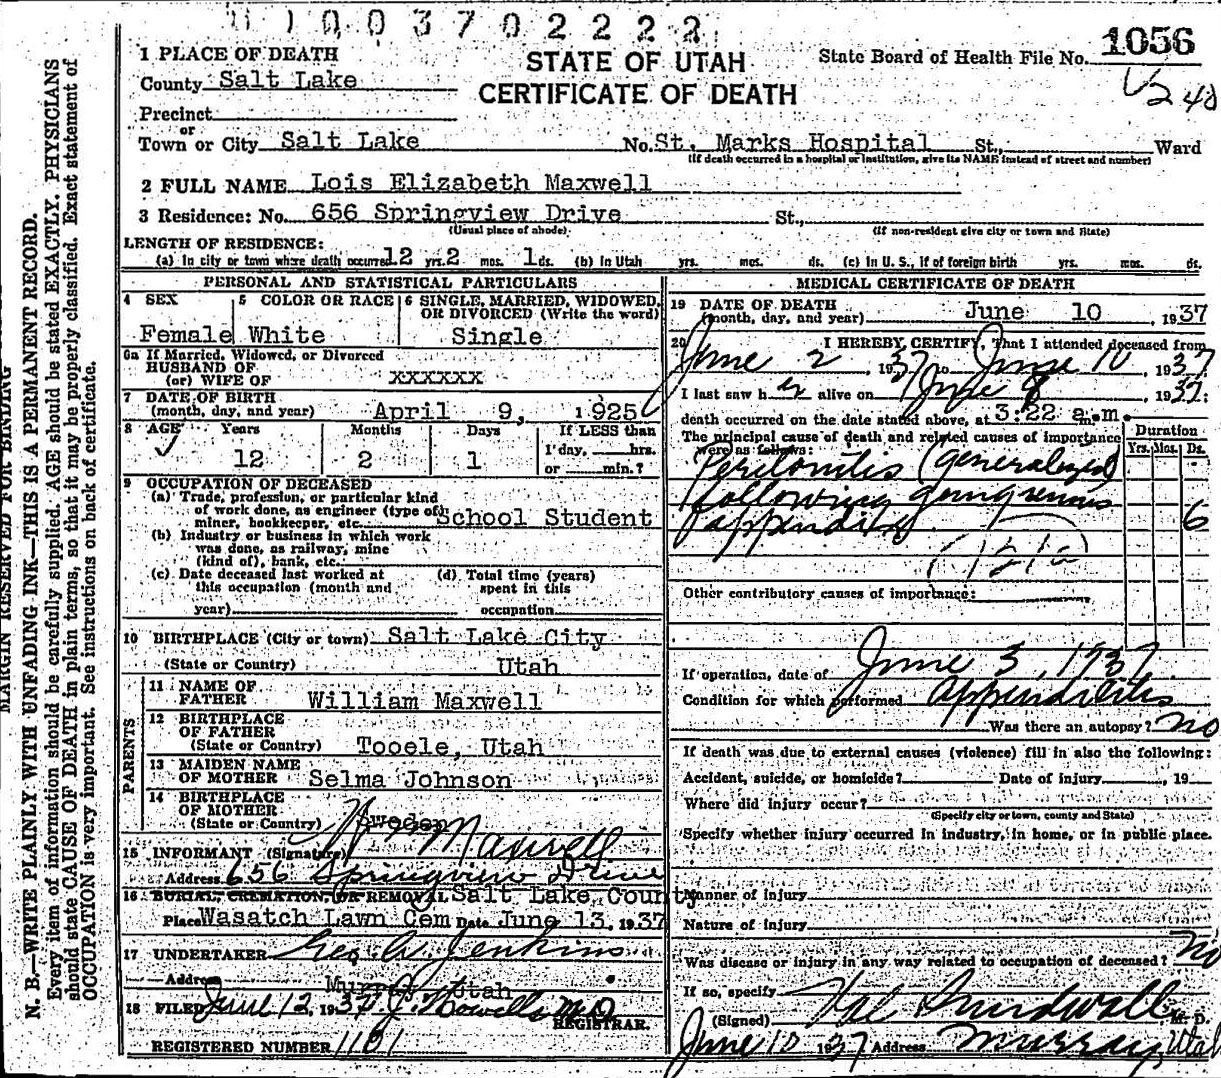 1003702222
1 PLACE OF DEATH
STATE OF UTAH
CERTIFICATE OF DEATH
State Board of Health File No. 1056
County Salt Lake
Precinct
or
Town or City Salt Lake No. St. Marks Hospital St., Ward
(If death occurred in a hospital or institution, give its NAME instead of street and number)
2 FULL NAME Lois Elizabeth Maxwell
3 Residence: No. 656 Springview Drive St.,
(Usual place of abode) (If non-resident give city or town and State)
LENGTH OF RESIDENCE:
(a) In city or town where death occurred 12 yrs. 2 mos. 1 ds. (b) In Utah yrs. mos. ds. (c) In U. S., if of foreign birth yrs. mos. ds.
PERSONAL AND STATISTICAL PARTICULARS
4 SEX 5 COLOR OR RACE 6 SINGLE, MARRIED, WIDOWED, OR DIVORCED (Write the word)
Female White Single
6a If Married, Widowed, or Divorced
HUSBAND OF
(or) WIFE OF xxxxxx
7 DATE OF BIRTH
(month, day, and year) April 9, 1925
8 AGE Years Months Days If LESS than
1 day, hrs.
12 2 1 or min.?
9 OCCUPATION OF DECEASED
(a) Trade, profession, or particular kind
of work done, as engineer (type of)
miner, bookkeeper, etc. School Student
(b) Industry or business in which work
was done, as railway, mine
(kind of), bank, etc.
(c) Date deceased last worked at
this occupation (month and
year)
(d) Total time (years)
spent in this
occupation
10 BIRTHPLACE (City or town) Salt Lake City
(State or Country) Utah
PARENTS
11 NAME OF
FATHER William Maxwell
12 BIRTHPLACE
OF FATHER
(State or Country) Tooele, Utah
13 MAIDEN NAME
OF MOTHER Selma Johnson
14 BIRTHPLACE
OF MOTHER
(State or Country) Sweden
15 INFORMANT (Signature) Wm Maxwell
Address 656 Springview Drive
16 BURIAL, CREMATION, OR REMOVAL Salt Lake County
Place Wasatch Lawn Cem Date June 13, 1937
17 UNDERTAKER Geo. A. Jenkins
Address Murray Utah
18 FILED June 12, 1937 M.D.
REGISTRAR.
REGISTERED NUMBER 1101
MEDICAL CERTIFICATE OF DEATH
19 DATE OF DEATH
(month, day, and year) June 10, 1937
20 I HEREBY CERTIFY, That I attended deceased from
June 2, 1937 to June 10, 1937
I last saw her alive on June 8, 1937:
death occurred on the date stated above, at 3:22 a.m.
The principal cause of death and related causes of importance
were as follows:
Duration
Yrs. Mos. Ds.
Peritonitis (generalized)
following gangrenous
appendix 6
Other contributory causes of importance:
If operation, date of June 3, 1937
Condition for which performed appendicitis
Was there an autopsy? no
If death was due to external causes (violence) fill in also the following:
Accident, suicide, or homicide? Date of injury , 19
Where did injury occur?
(Specify city or town, county and State)
Specify whether injury occurred in industry, in home, or in public place.
Manner of injury
Nature of injury
Was disease or injury in any way related to occupation of deceased? no
If so, specify
(Signed) M. D.
June 10 1937 Address Murray, Utah
MARGIN RESERVED FOR BINDING
N. B.—WRITE PLAINLY WITH UNFADING INK—THIS IS A PERMANENT RECORD.
Every item of information should be carefully supplied. AGE should be stated EXACTLY. PHYSICIANS
should state CAUSE OF DEATH in plain terms, so that it may be properly classified. Exact statement of
OCCUPATION is very important. See instructions on back of certificate.